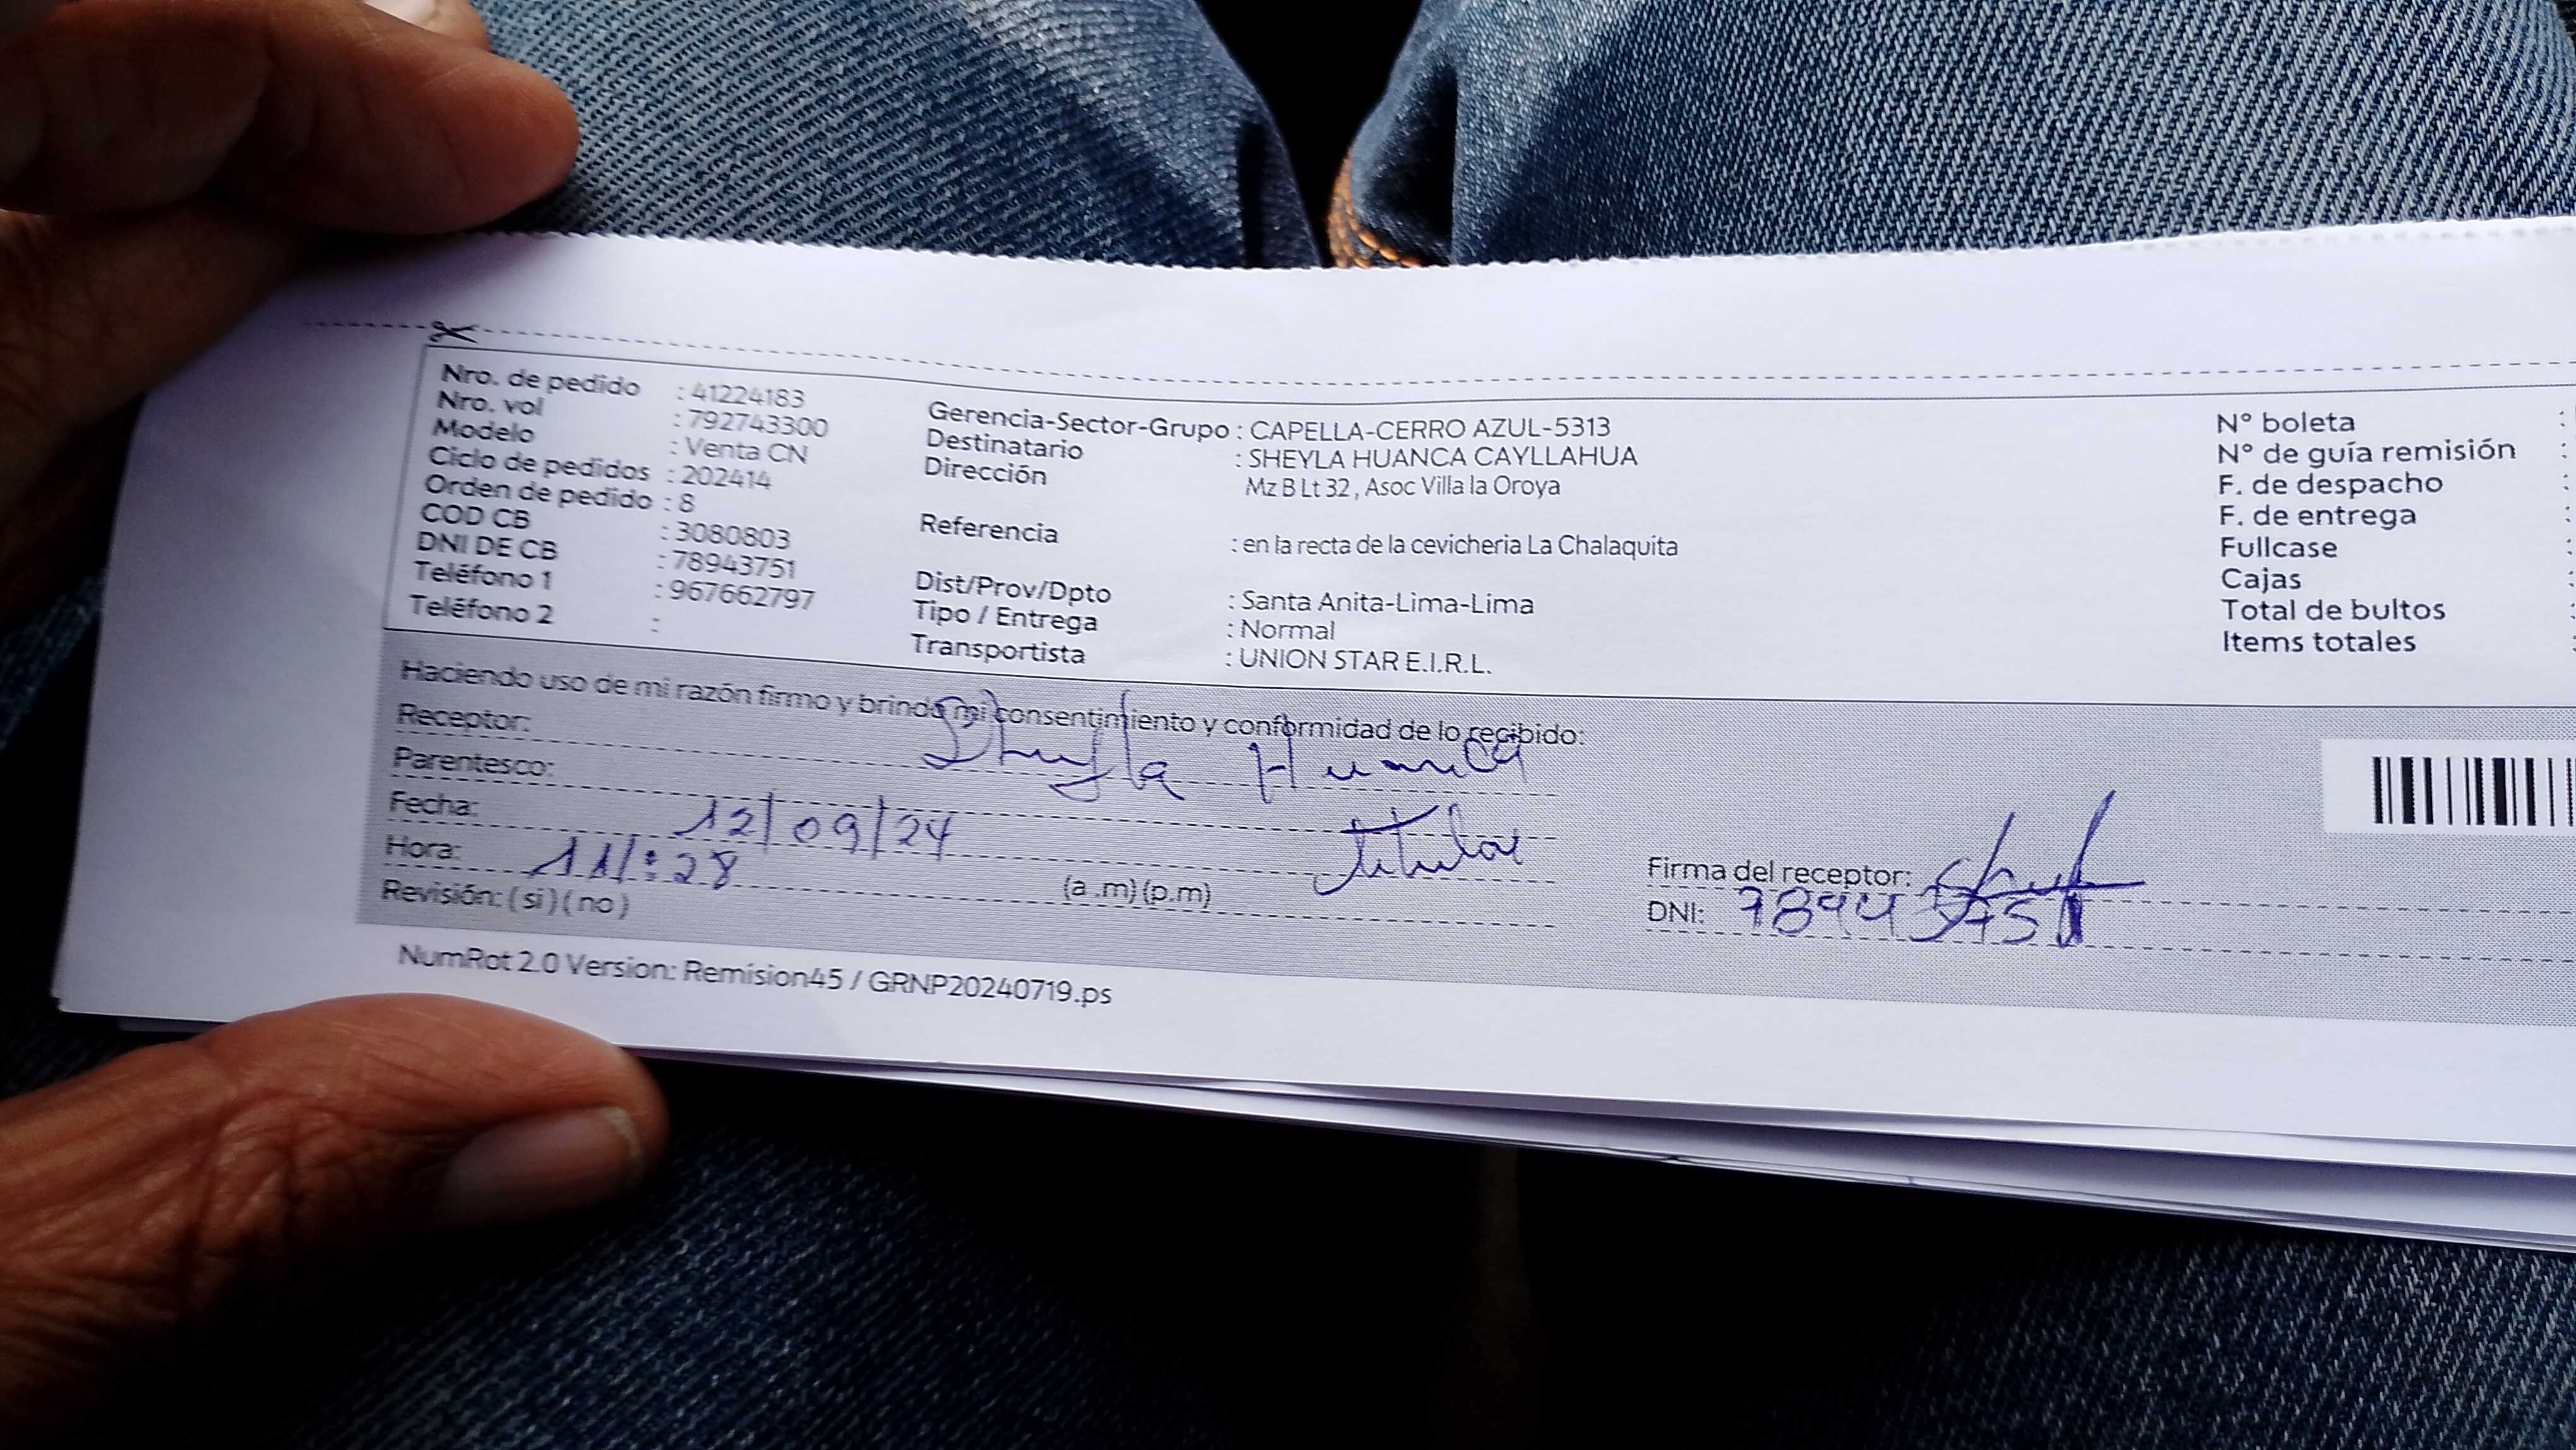 Nro. de pedido : 41224183
Nro. vol : 792743300
Modelo : Venta CN
Ciclo de pedidos : 202414
Orden de pedido : 8
COD CB : 3080803
DNI DE CB : 78943751
Teléfono 1 : 967662797
Teléfono 2 :
Gerencia-Sector-Grupo : CAPELLA-CERRO AZUL-5313
Destinatario : SHEYLA HUANCA CAYLLAHUA
Dirección Mz B Lt 32 , Asoc Villa la Oroya
Referencia : en la recta de la cevicheria La Chalaquita
Dist/Prov/Dpto : Santa Anita-Lima-Lima
Tipo / Entrega : Normal
Transportista : UNION STAR E.I.R.L.
N° boleta :
N° de guía remisión :
F. de despacho :
F. de entrega :
Fullcase :
Cajas :
Total de bultos :
Items totales :
Haciendo uso de mi razón firmo y brindo mi consentimiento y conformidad de lo recibido:
Receptor: Sheyla Huanca
Parentesco: titular
Fecha: 12/09/24
Hora: 11:28 (a .m) (p.m)
Revisión: ( si ) ( no )
Firma del receptor:
DNI: 78943751
NumRot 2.0 Version: Remision45 / GRNP20240719.ps